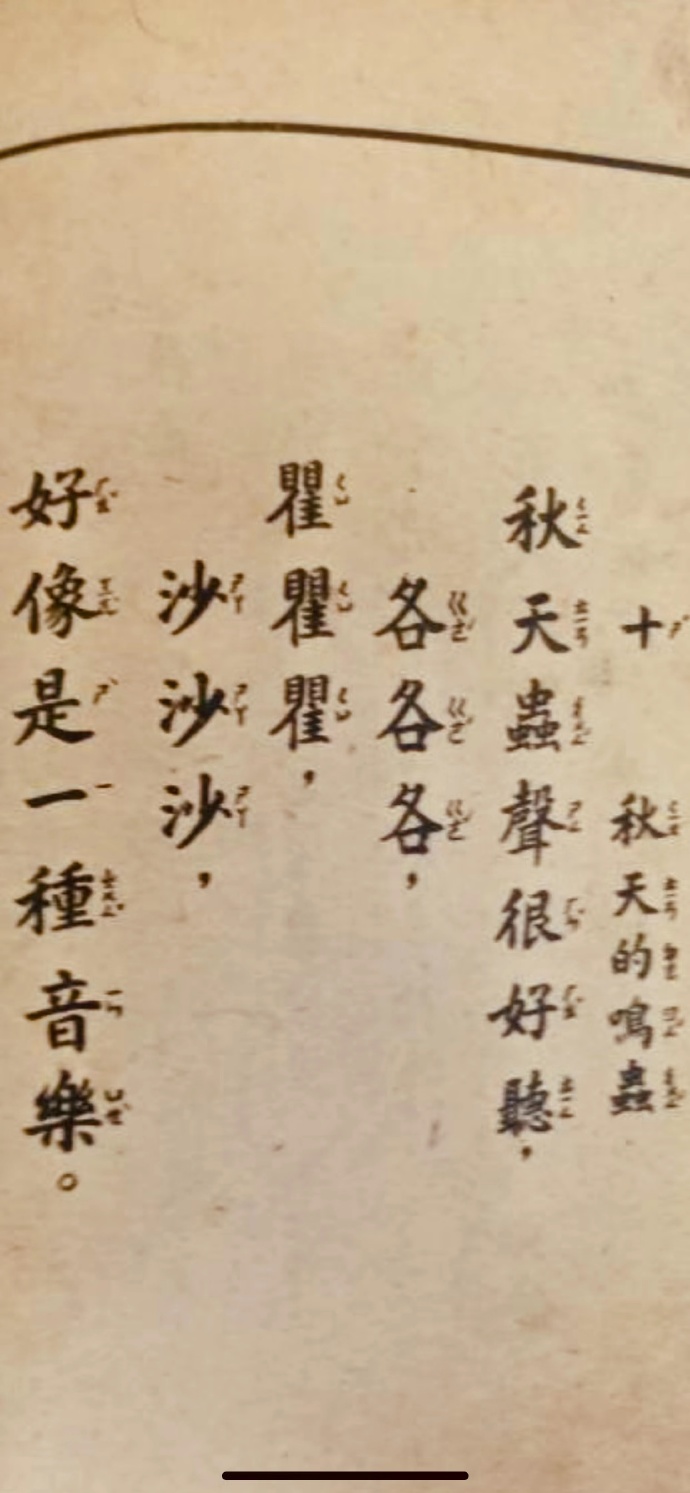 十 秋天的鳴蟲
秋天蟲聲很好聽，
各各各，
瞿瞿瞿，
沙沙沙，
好像是一種音樂。